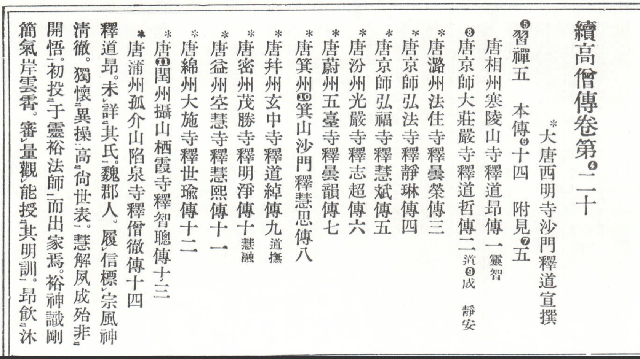 續高僧傳卷第❹二十
＊大唐西明寺沙門釋道宣撰
❺習禪五　本傳❻十四　附見❼五
唐相州寒陵山寺釋道昂傳一靈智
❽唐京師大莊嚴寺釋道哲傳二道❾成　靜安
＊唐潞州法住寺釋曇榮傳三
＊唐京師弘法寺釋靜琳傳四
＊唐京師弘福寺釋慧斌傳五
＊唐汾州光嚴寺釋志超傳六
＊唐蔚州五臺寺釋曇韻傳七
＊唐箕州❿箕山沙門釋慧思傳八
＊唐幷州玄中寺釋道綽傳九道撫
＊唐密州茂勝寺釋明淨傳十慧融
＊唐益州空慧寺釋慧熙傳十一
＊唐綿州大施寺釋世瑜傳十二
＊唐⓫閏州攝山栖霞寺釋智聰傳十三
＊唐蒲州孤介山陷泉寺釋僧徹傳十四
釋道昂。未詳其氏。魏郡人。履信標宗風神
清徹。獨懷異操。高尙世表。慧解夙成殆非
開悟。初投于靈裕法師而出家焉。裕神識剛
簡氣岸雲霄。審量觀能授其明訓。昂飮沐